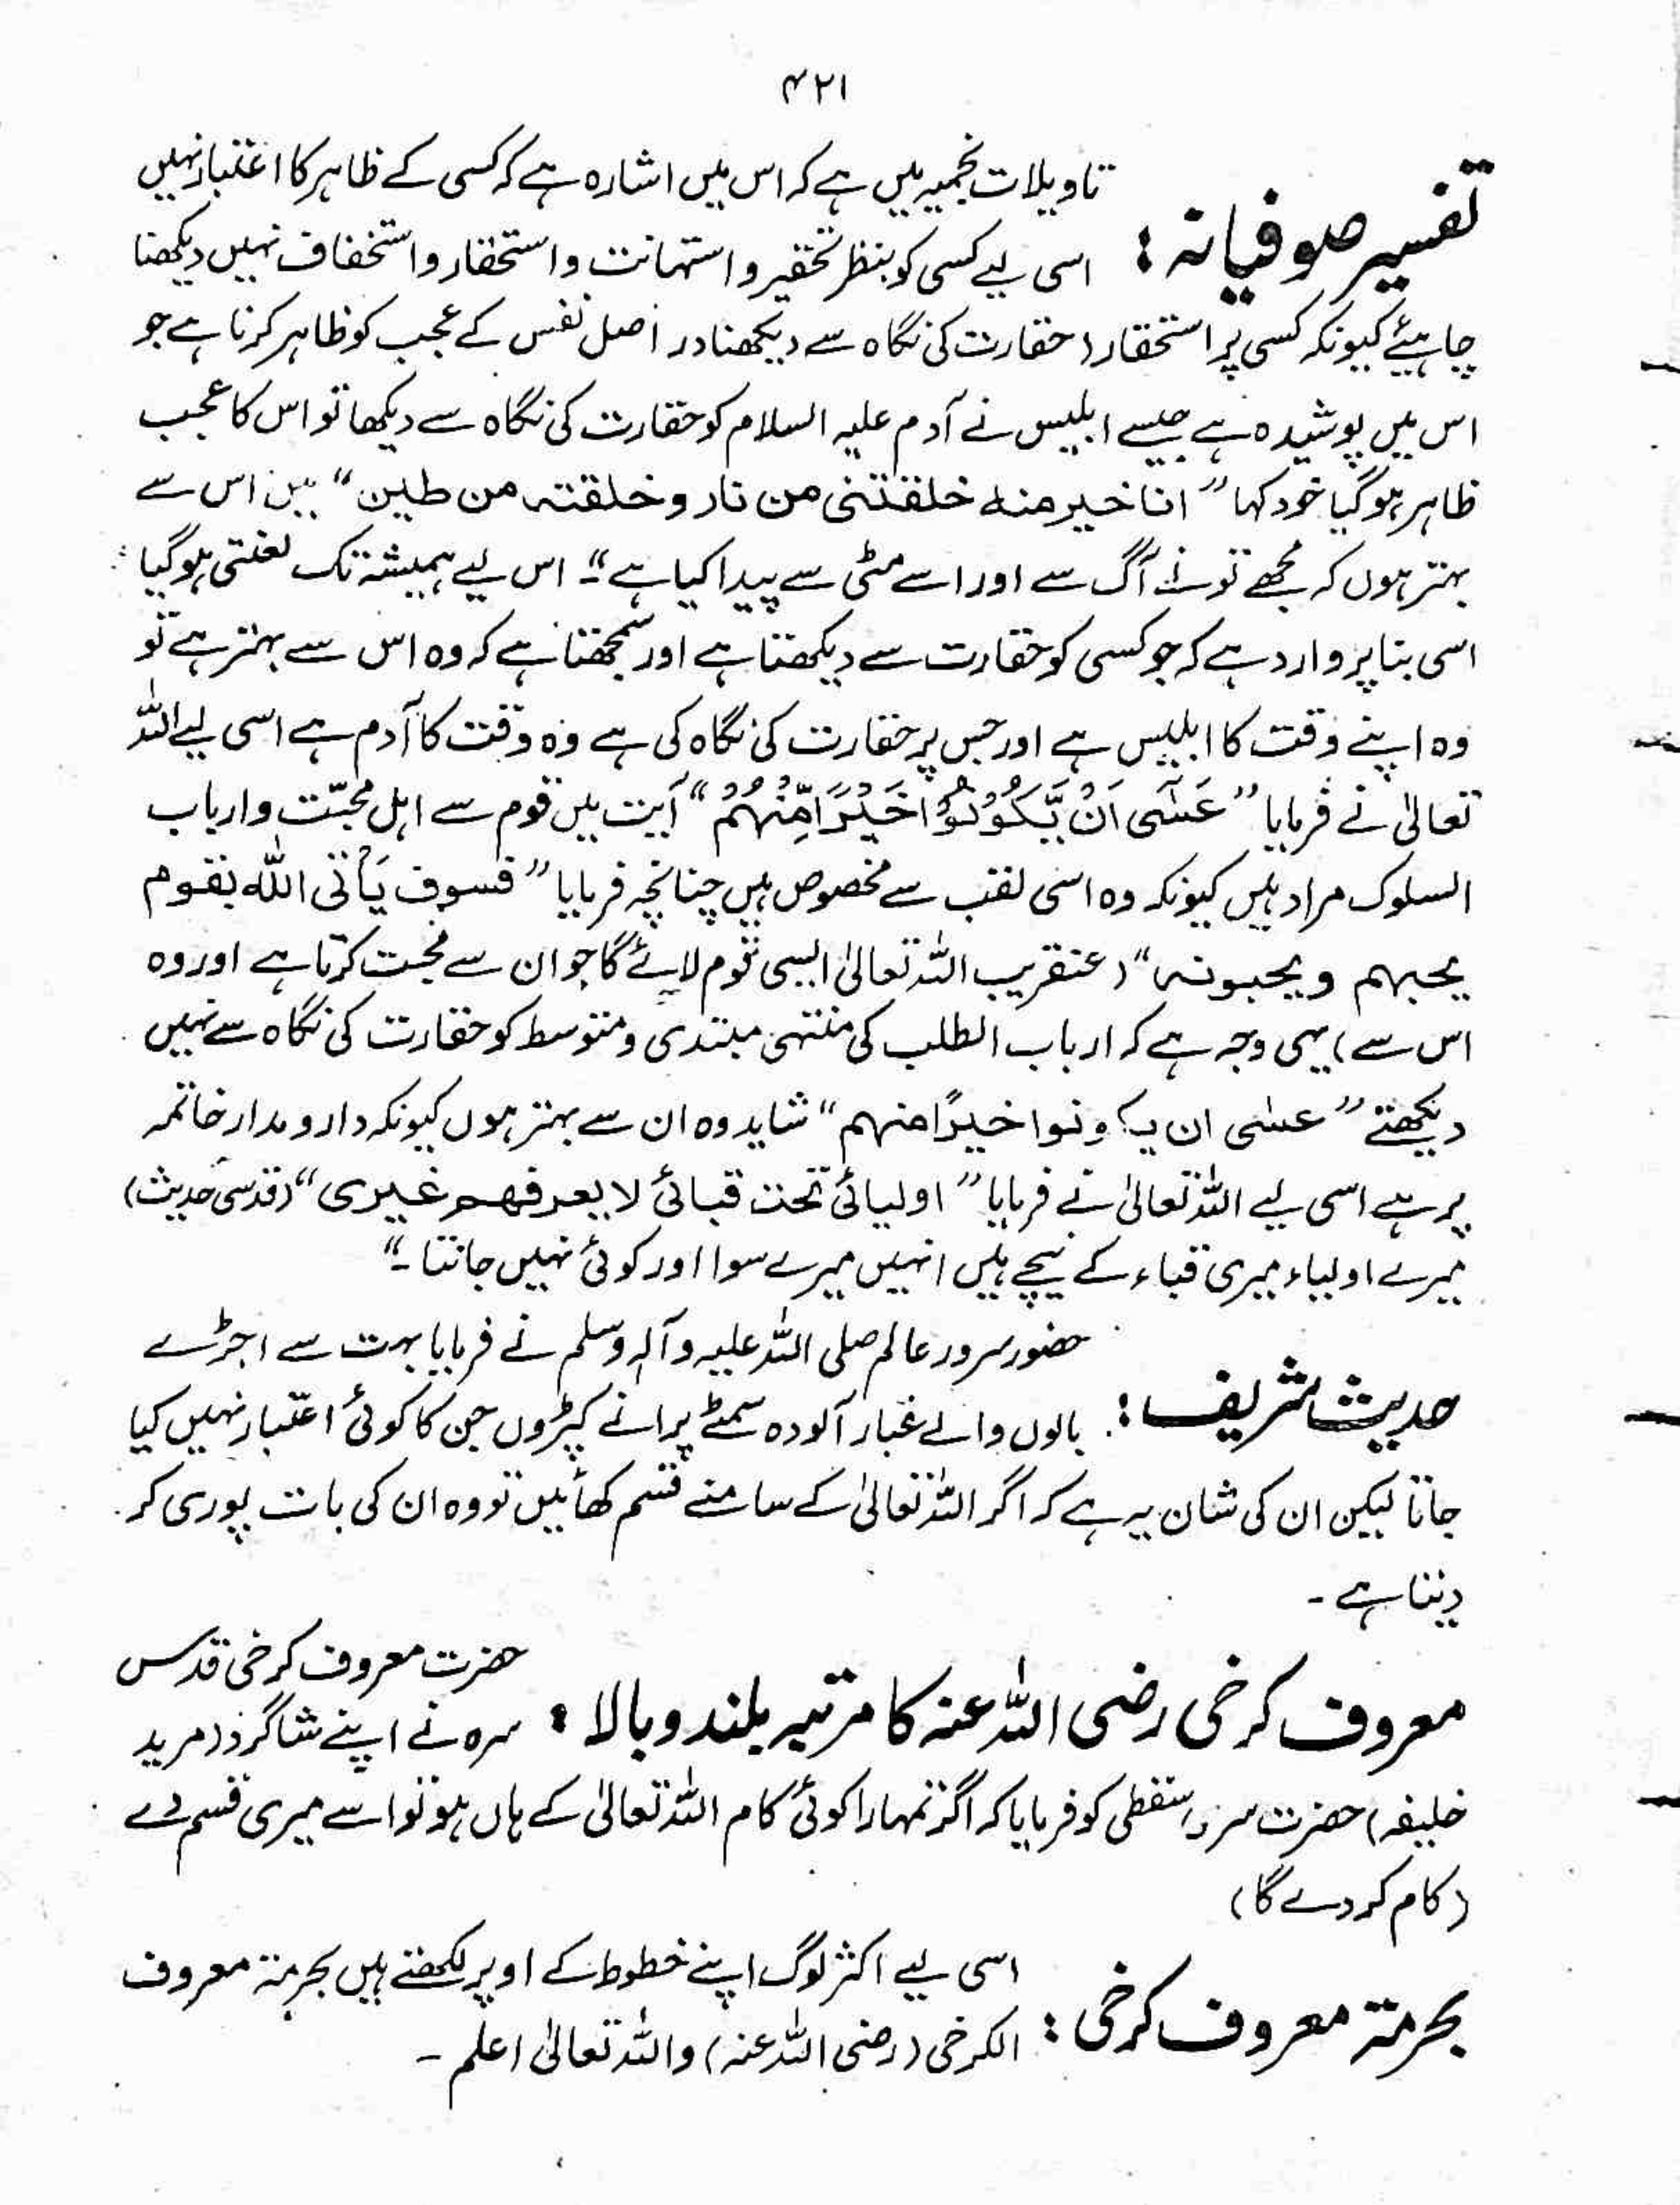 ۴۲۱
تفسیر صوفیانہ : تاویلات نجمیہ میں ہے کہ اس میں اشارہ ہے کہ کسی کے ظاہر کا اعتبار نہیں
اسی لیے کسی کو بنظر تحقیر و استہانت و استحقار و استخفاف نہیں دیکھنا
چاہیئے کیونکہ کسی پر استحقار (حقارت کی نگاہ سے دیکھنا در اصل نفس کے عجب کو ظاہر کرنا ہے جو
اس میں پوشیدہ ہے جیسے ابلیس نے آدم علیہ السلام کو حقارت کی نگاہ سے دیکھا تو اس کا عجب
ظاہر ہو گیا خود کہا ”انا خیر منہ خلقتنی من نار و خلقتہ من طین“ میں اس سے
بہتر ہوں کہ مجھے تو نے آگ سے اور اسے مٹی سے پیدا کیا ہے“۔ اس لیے ہمیشہ تک لعنتی ہو گیا
اسی بنا پر وارد ہے کہ جو کسی کو حقارت سے دیکھتا ہے اور سمجھتا ہے کہ وہ اس سے بہتر ہے تو
وہ اپنے وقت کا ابلیس ہے اور جس پر حقارت کی نگاہ کی ہے وہ وقت کا آدم ہے اسی لیے اللہ
تعالیٰ نے فرمایا ”عَسٰٓی اَنْ یَّکُوْنُوْا خَیْرًا مِّنْہُمْ“ آیت میں قوم سے اہل محبّت و ارباب
السلوک مراد ہیں کیونکہ وہ اسی لقب سے مخصوص ہیں چنانچہ فرمایا ”فسوف یَأتی اللّٰہ بقوم
یحبہم ویحبونہ“ (عنقریب اللہ تعالیٰ ایسی قوم لائے گا جو ان سے محبت کرتا ہے اور وہ
اس سے) یہی وجہ ہے کہ ارباب الطلب کی منتہی مبتدی و متوسط کو حقارت کی نگاہ سے نہیں
دیکھتے ”عسٰی ان یکونوا خیرًا منہم“ شاید وہ ان سے بہتر ہوں کیونکہ دارومدار خاتمہ
پر ہے اسی لیے اللہ تعالیٰ نے فرمایا ”اولیائی تحت قبائی لا یعرفھم غیری“ (قدسی حدیث)
میرے اولیاء میری قباء کے نیچے ہیں انہیں میرے سوا اور کوئی نہیں جانتا۔“
حدیث شریف : حضور سرور عالم صلی اللہ علیہ وآلہ وسلم نے فرمایا بہت سے اجڑے
بالوں والے غبار آلودہ سمٹے پرانے کپڑوں جن کا کوئی اعتبار نہیں کیا
جاتا لیکن ان کی شان یہ ہے کہ اگر اللہ تعالیٰ کے سامنے قسم کھائیں تو وہ ان کی بات پوری کر
دیتا ہے۔
معروف کرخی رضی اللہ عنہ کا مرتبہ بلند و بالا : حضرت معروف کرخی قدس
سرہ نے اپنے شاگرد (مرید
خلیفہ) حضرت سری سقطی کو فرمایا کہ اگر تمہارا کوئی کام اللہ تعالیٰ کے ہاں ہو تو اسے میری قسم دے
(کام کر دے گا)
بحرمۃ معروف کرخی : اسی لیے اکثر لوگ اپنے خطوط کے اوپر لکھتے ہیں بحرمۃ معروف
الکرخی (رضی اللہ عنہ) واللہ تعالیٰ اعلم۔